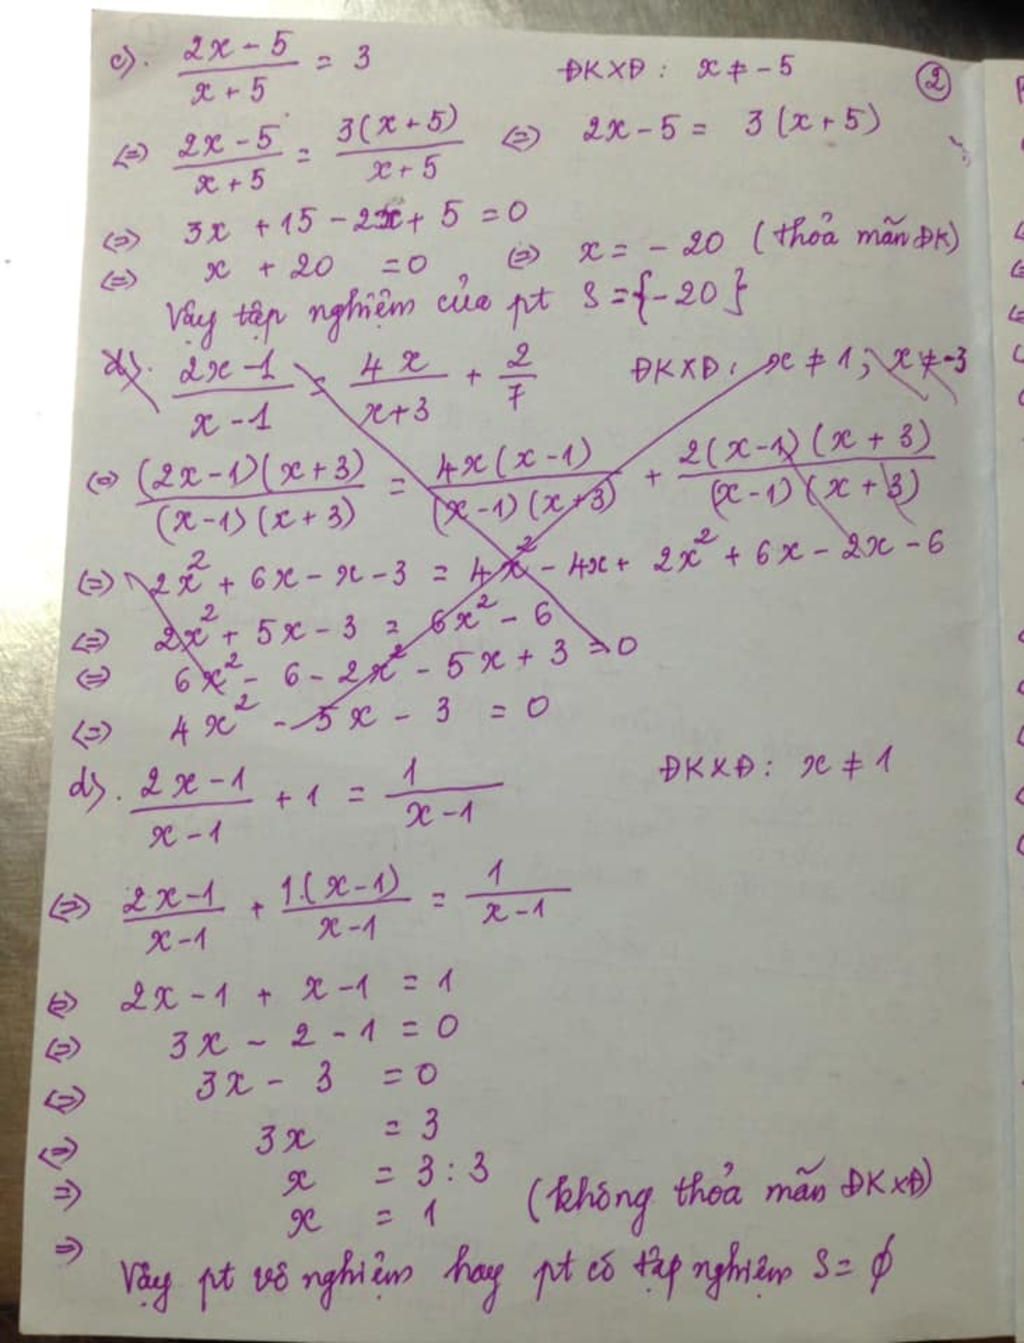 c). (2x - 5)/(x + 5) = 3 ĐKXĐ: x ≠ -5 ②
<=> (2x - 5)/(x + 5) = 3(x + 5)/(x + 5) <=> 2x - 5 = 3(x + 5)
<=> 3x + 15 - 2x + 5 = 0
<=> x + 20 = 0, <=> x = - 20 (thỏa mãn ĐK)
Vậy tập nghiệm của pt S = {-20}
d). (2x - 1)/(x - 1) = 4x/(x + 3) + 2/7 ĐKXĐ: x ≠ 1; x ≠ -3
<=> (2x - 1)(x + 3)/((x - 1)(x + 3)) = 4x(x - 1)/((x - 1)(x + 3)) + 2(x - 1)(x + 3)/((x - 1)(x + 3))
<=> 2x² + 6x - x - 3 = 4x² - 4x + 2x² + 6x - 2x - 6
<=> 2x² + 5x - 3 = 6x² - 6
<=> 6x² - 6 - 2x² - 5x + 3 = 0
<=> 4x² - 5x - 3 = 0
d). (2x - 1)/(x - 1) + 1 = 1/(x - 1) ĐKXĐ: x ≠ 1
<=> (2x - 1)/(x - 1) + 1.(x - 1)/(x - 1) = 1/(x - 1)
<=> 2x - 1 + x - 1 = 1
<=> 3x - 2 - 1 = 0
<=> 3x - 3 = 0
<=> 3x = 3
=> x = 3 : 3
=> x = 1 (không thỏa mãn ĐKXĐ)
Vậy pt vô nghiệm hay pt có tập nghiệm S = ∅